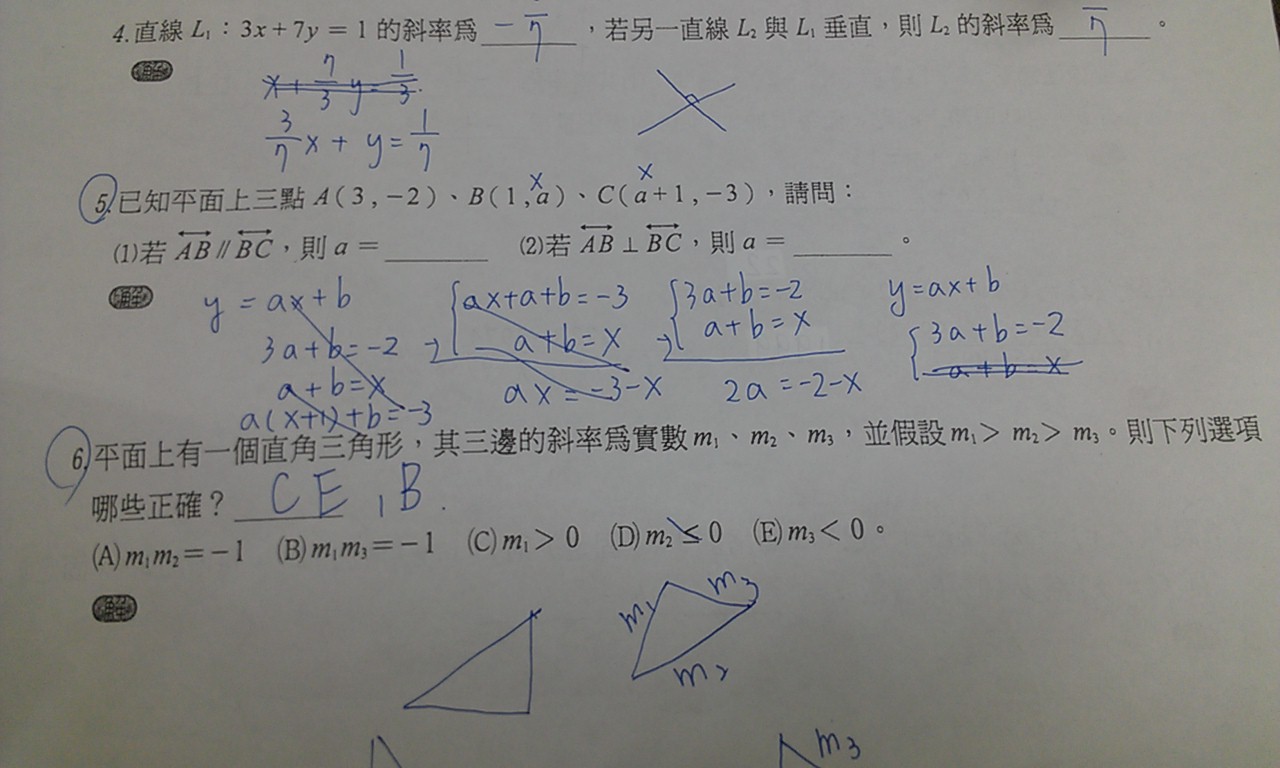 4.直線 L₁：3x+7y=1 的斜率為 -7̅ ，若另一直線 L₂ 與 L₁ 垂直，則 L₂ 的斜率為 7̅ 。
解
x + 7/3 y = 1/3
3/7 x + y = 1/7
x x
5.已知平面上三點 A(3,-2)、B(1,a)、C(a+1,-3)，請問：
(1)若 AB // BC，則 a = ______ (2)若 AB ⊥ BC，則 a = ______。
解
y = ax+b ax+a+b=-3 3a+b=-2 y=ax+b
3a+b=-2 -) a+b=x -) a+b=x 3a+b=-2
a+b=x ax=-3-x 2a=-2-x a+b=x
a(x+1)+b=-3
6.平面上有一個直角三角形，其三邊的斜率為實數 m₁、m₂、m₃，並假設 m₁> m₂> m₃。則下列選項
哪些正確？ C E , B .
(A) m₁m₂=-1 (B) m₁m₃=-1 (C) m₁>0 (D) m₂≤0 (E) m₃<0。
解
m₁ m₃
m₂
m₃